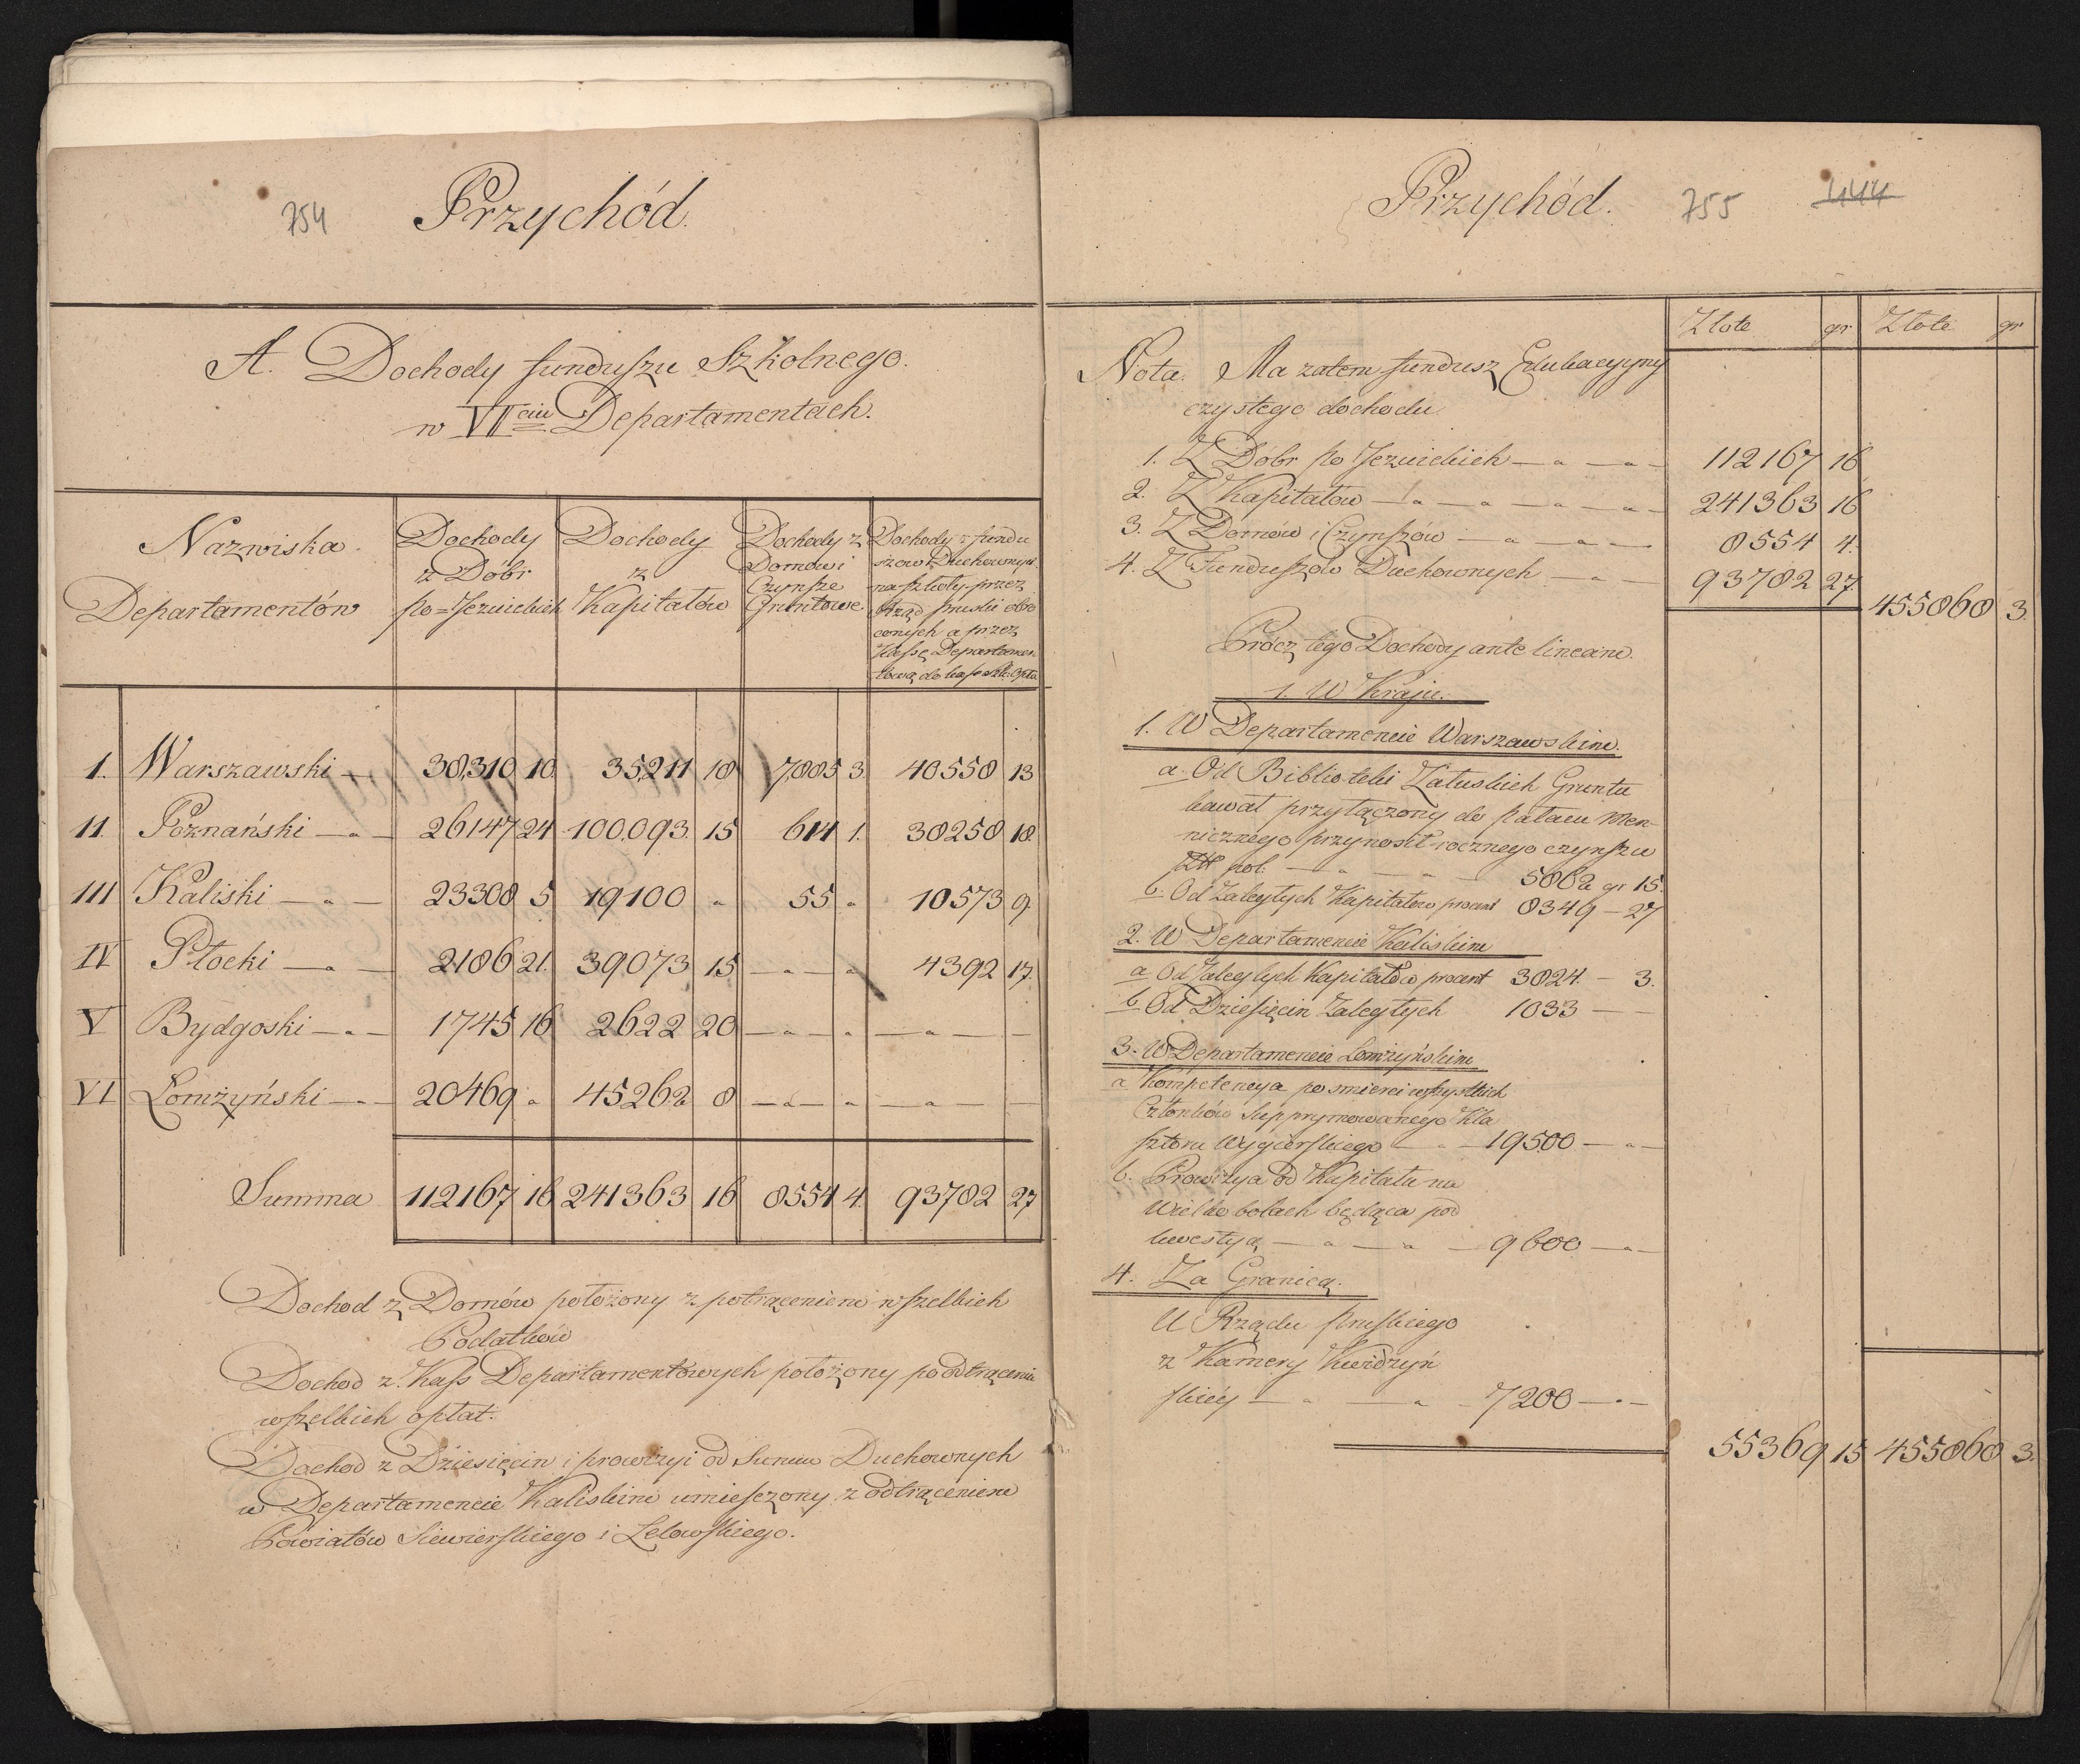 754
Przychód.
A. Dochody funduszu Szkolnego.
w VI ciu Departamentach.
Nazwiska Departamentów
Dochody z Dóbr po=Jezuickich
Dochody z Kapitałów
Dochody z Domów i Czynsze Gruntowe
Dochody z fundu
szow Duchownych
na szkoły przez
Rząd pruski obró
conych a przez
Kassę Departamen
tową do kass Szk: Opła
I. Warszawski — 38,310 10 35211 18 7885 3. 40558 13
II. Poznański — " — 26147 24 100,093 15 614 1. 38258 18.
III Kaliski — " — 23308 5 19100 " 55 " 10573 9.
IV Płocki — " — 2186 21. 39073 15 — " — " 4392 17.
V Bydgoski — " — 1745 16 2622 20 — " — " — " — —
VI Łomżyński — " — 20469 " 45262 8 — " — " — " — —
Summa 112167 16 241363 16 8554 4. 93782 27
Dochod z Domów położony z potrąceniem wszelkich
Podatków
Dochod z Kass Departamentowych położony po odtrąceniu
wszelkich opłat.
Dochod z Dziesięcin i prowizyi od Summ Duchownych
w Departamencie Kaliskim umiesczony z odtrąceniem
Powiatów Siewierskiego i Lelowskiego.
Przychód.
755
444
Złote gr Złote gr
Nota. Ma zatem fundusz Edukacyyny
czystego dochodu
1. Z Dóbr po Jezuickich — " — " — 112167 16
2. Z Kapitałów — " — " — " — " — 241363 16
3. Z Domów i Czynszów — " — " — 8554 4.
4. Z Funduszów Duchownych — " — 93782 27.
455868 3.
Prócz tego Dochody ante lineam.
1. W Kraju.
1. W Departamencie Warszawskim.
a. Od Biblioteki Załuskich Gruntu
kawał przyłączony do pałacu Men-
nicznego przynosił rocznego czynszu
Złł pol: — " — " — 5862 gr 15.
b. Od Zaległych Kapitałów procent 8349 — 27
2. W Departamencie Kaliskim
a Od Zaległych Kapitałów procent 3824. — 3.
b Od Dziesięcin Zaległych 1033 — —
3. W Departamencie Łomżyńskim
a Kompetencya po śmierci wszystkich
Członków Supprymowanego Kla
sztoru Wygierskiego — " — 19500 — " —
b. Prowizya od Kapitału na
Wielkobolach będąca pod
kwestyą — " — " — 9600 — " —
4. Za Granicą.
U Rządu pruskiego
z Kamery Kwidzyń
skiéy — " — " — 7200 — " —
55369 15 455868 3.